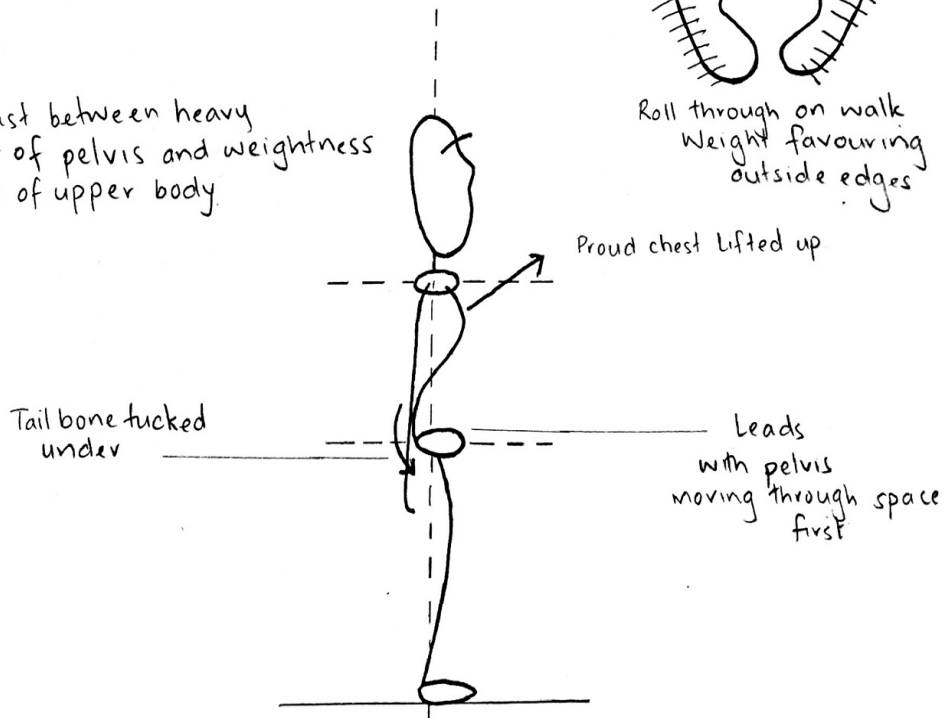 ast between heavy
of pelvis and weightness
of upper body.
Roll through on walk
Weight favouring
outside edges
Proud chest lifted up
Tail bone tucked
under
Leads
with pelvis
moving through space
first